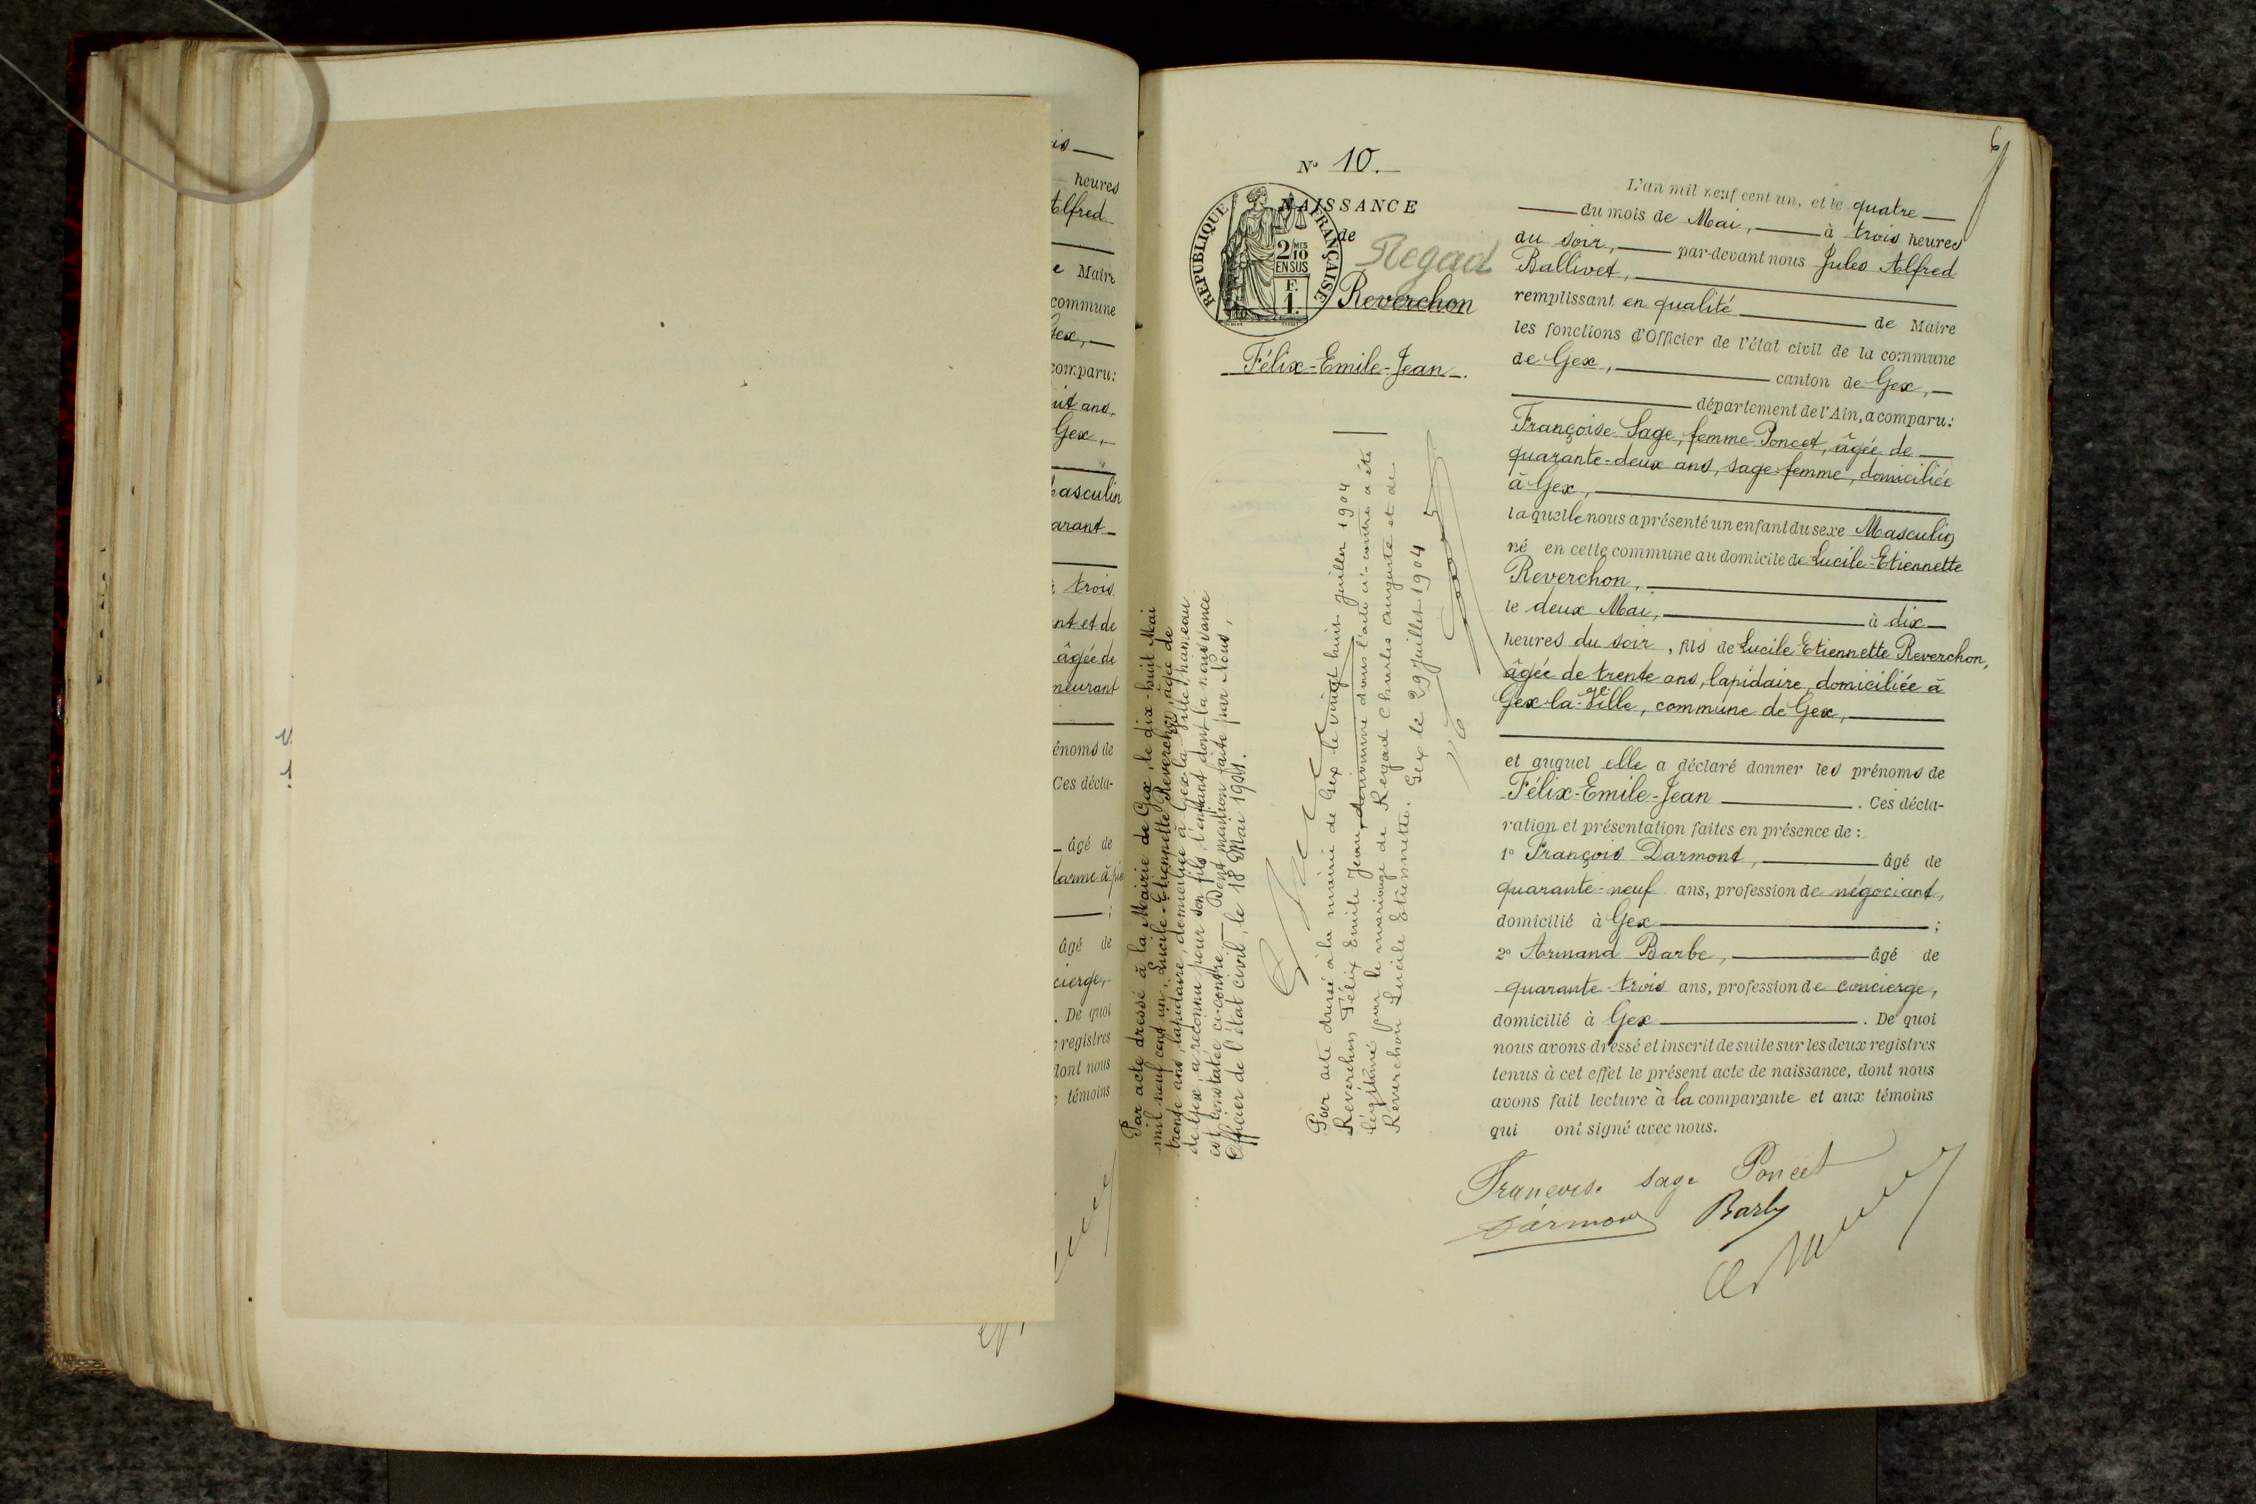 is
heures
Alfred
e Maire
commune
Gex,
comparu:
uit ans,
Gex,
Masculin
arant
trois
nt et de
âgée de
meurant
énoms de
Ces décla-
âgé de
darme à pie
;
âgé de
cierge,
. De quoi
registres
dont nous
témoins
Par acte dressé à la Mairie de Gex, le dix-huit Mai
mil neuf cent un, Lucile-Etiennette Reverchon, âgée de
trente ans, lapidaire, domiciliée à Gex-la-Ville, hameau
de Gex, a reconnu pour son fils, l'enfant dont la naissance
est constatée ci-contre. Dont mention faite par Nous,
Officier de l'état civil, le 18 Mai 1901.
Par acte dressé à la mairie de Gex le vingt huit juillet 1904
Reverchon Félix Emile Jean, dénommé dans l'acte ci-contre a été
légitimé par le mariage de Regad Charles Auguste et de
Reverchon Lucile Etiennette. Gex le 29 Juillet 1904
N° 10.
NAISSANCE
de
RÉPUBLIQUE FRANÇAISE
2 MES
10
EN SUS
F.
1.
Regad
Reverchon
Félix-Emile-Jean.
6
L'an mil neuf cent un, et le quatre
du mois de Mai, à trois heures
du soir, par-devant nous Jules Alfred
Ballivet,
remplissant en qualité de Maire
les fonctions d'Officier de l'état civil de la commune
de Gex, canton de Gex,
département de l'Ain, a comparu:
Françoise Sage, femme Poncet, âgée de
quarante-deux ans, sage-femme, domiciliée
à Gex,
laquelle nous a présenté un enfant du sexe Masculin
né en cette commune au domicile de Lucile-Etiennette
Reverchon,
le deux Mai, à dix
heures du soir, fils de Lucile Etiennette Reverchon,
âgée de trente ans, lapidaire, domiciliée à
Gex-la-Ville, commune de Gex,
et auquel elle a déclaré donner les prénoms de
Félix-Emile-Jean . Ces décla-
ration et présentation faites en présence de :
1° François Darmont, âgé de
quarante-neuf ans, profession de négociant,
domicilié à Gex ;
2° Armand Barbe, âgé de
quarante-trois ans, profession de concierge,
domicilié à Gex . De quoi
nous avons dressé et inscrit de suite sur les deux registres
tenus à cet effet le présent acte de naissance, dont nous
avons fait lecture à la comparante et aux témoins
qui ont signé avec nous.
Françoise Sage Poncet
Darmont Barbe